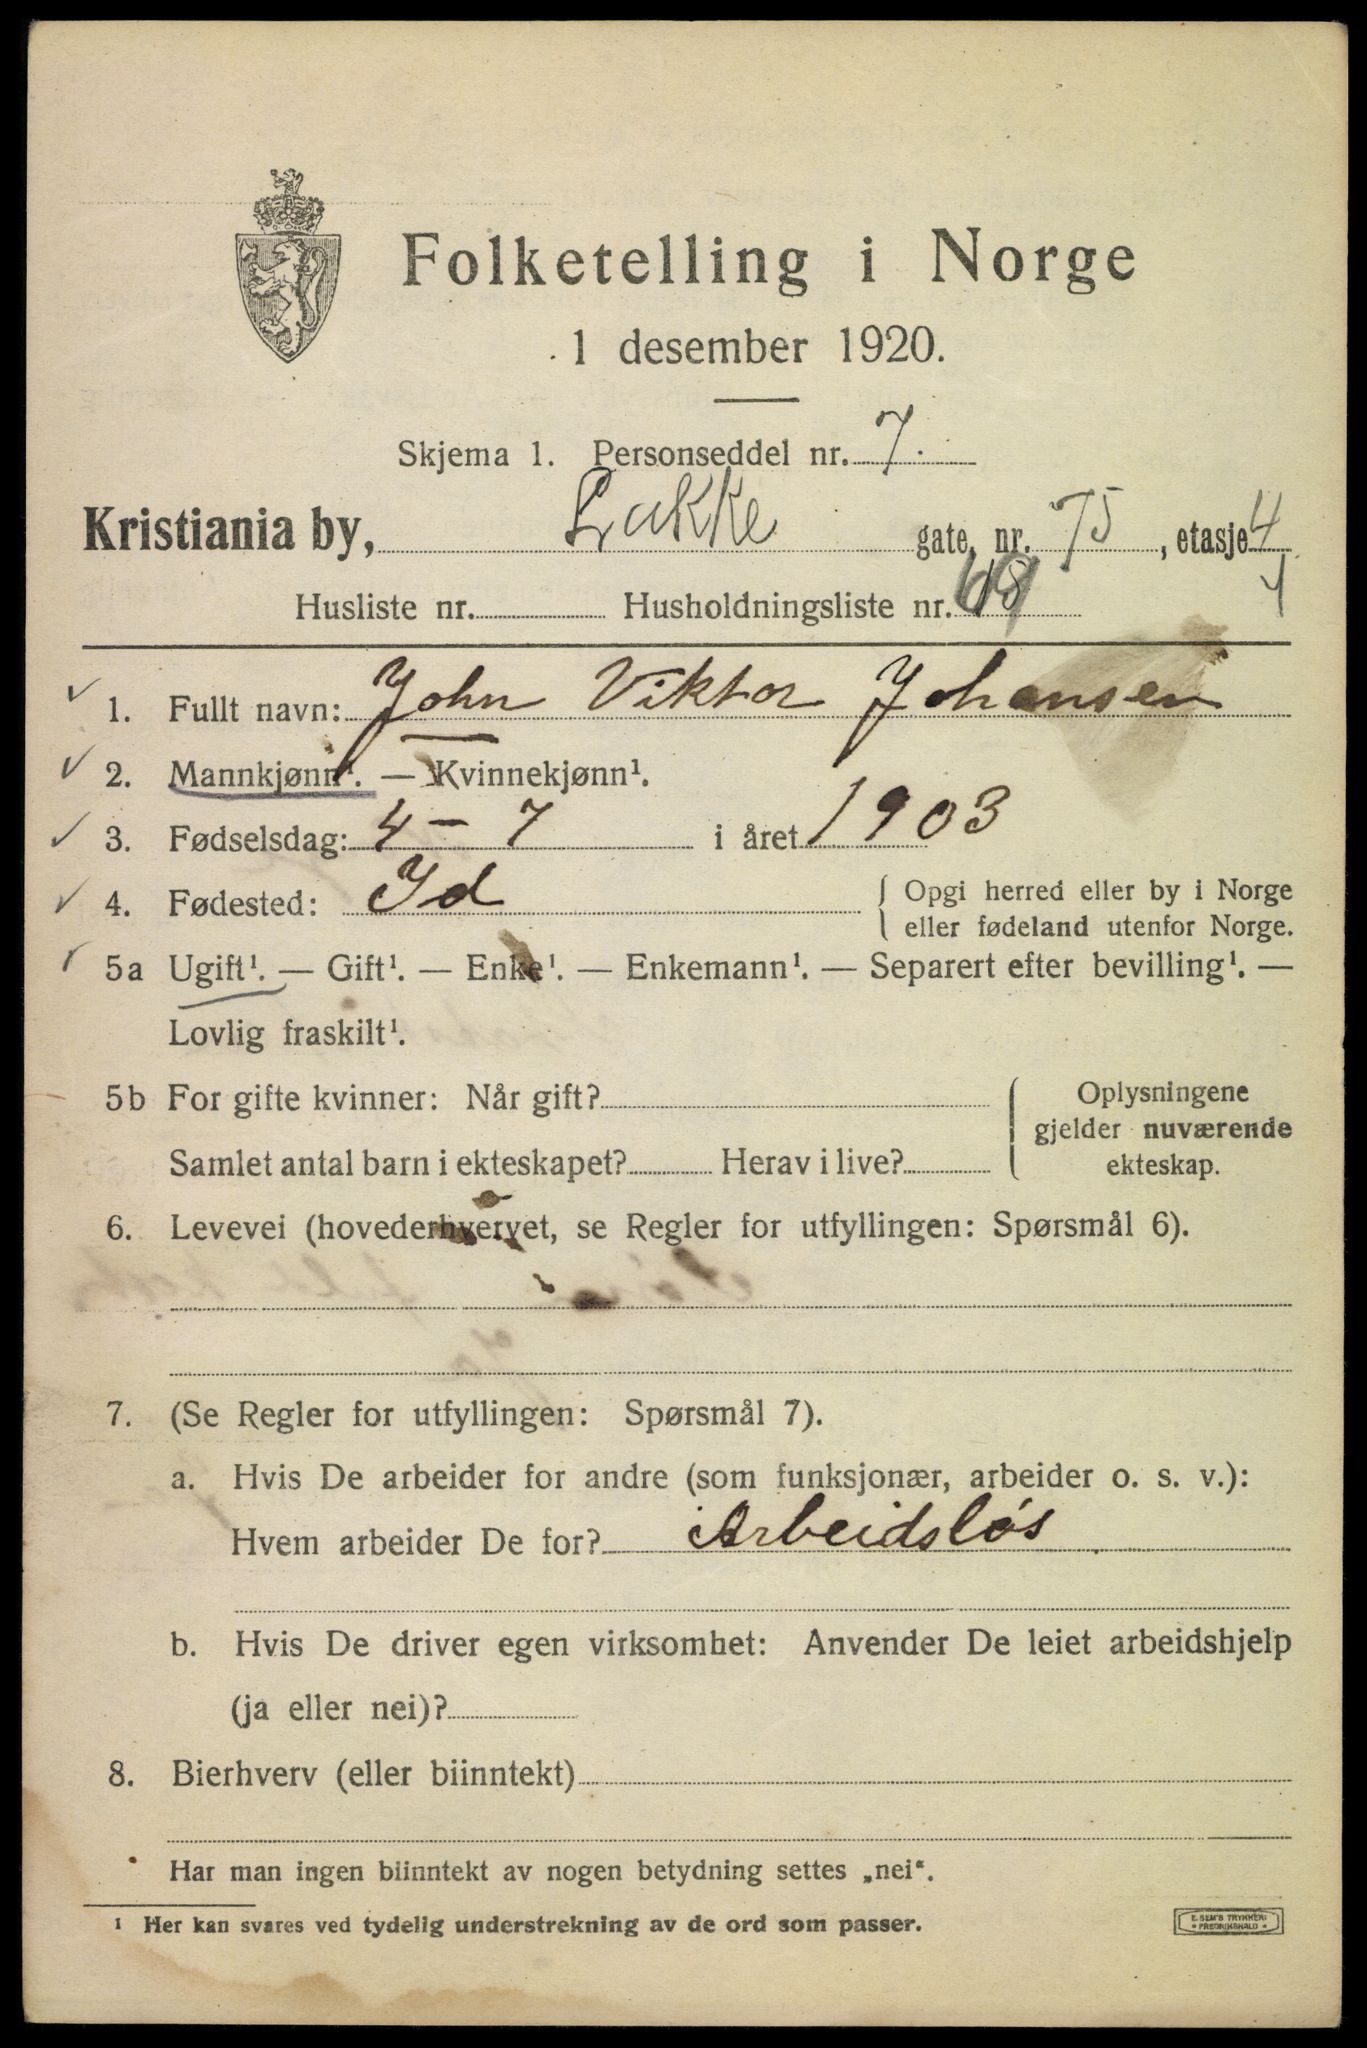 Folketelling i Norge
1 desember 1920.
Skjema 1. Personseddel nr. 7.
Kristiania by, Lakke gate, nr. 75, etasje 4
Husliste nr. Husholdningsliste nr.
1. Fullt navn: John Viktor Johansen
2. Mannkjønn¹. — Kvinnekjønn¹.
3. Fødselsdag: 4 – 7 i året 1903
4. Fødested: Id { Opgi herred eller by i Norge
eller fødeland utenfor Norge.
5a Ugift¹. — Gift¹. — Enke¹. — Enkemann¹. — Separert efter bevilling¹. —
Lovlig fraskilt¹.
5b For gifte kvinner: Når gift? { Oplysningene
gjelder nuværende
Samlet antal barn i ekteskapet? Herav i live? ekteskap.
6. Levevei (hovederhvervet, se Regler for utfyllingen: Spørsmål 6).
7. (Se Regler for utfyllingen: Spørsmål 7).
a. Hvis De arbeider for andre (som funksjonær, arbeider o. s. v.):
Hvem arbeider De for? Arbeidsløs
b. Hvis De driver egen virksomhet: Anvender De leiet arbeidshjelp
(ja eller nei)?
8. Bierhverv (eller biinntekt)
Har man ingen biinntekt av nogen betydning settes „nei“.
¹ Her kan svares ved tydelig understrekning av de ord som passer.
E. SEM'S TRYKKERI
* FREDRIKSHALD *